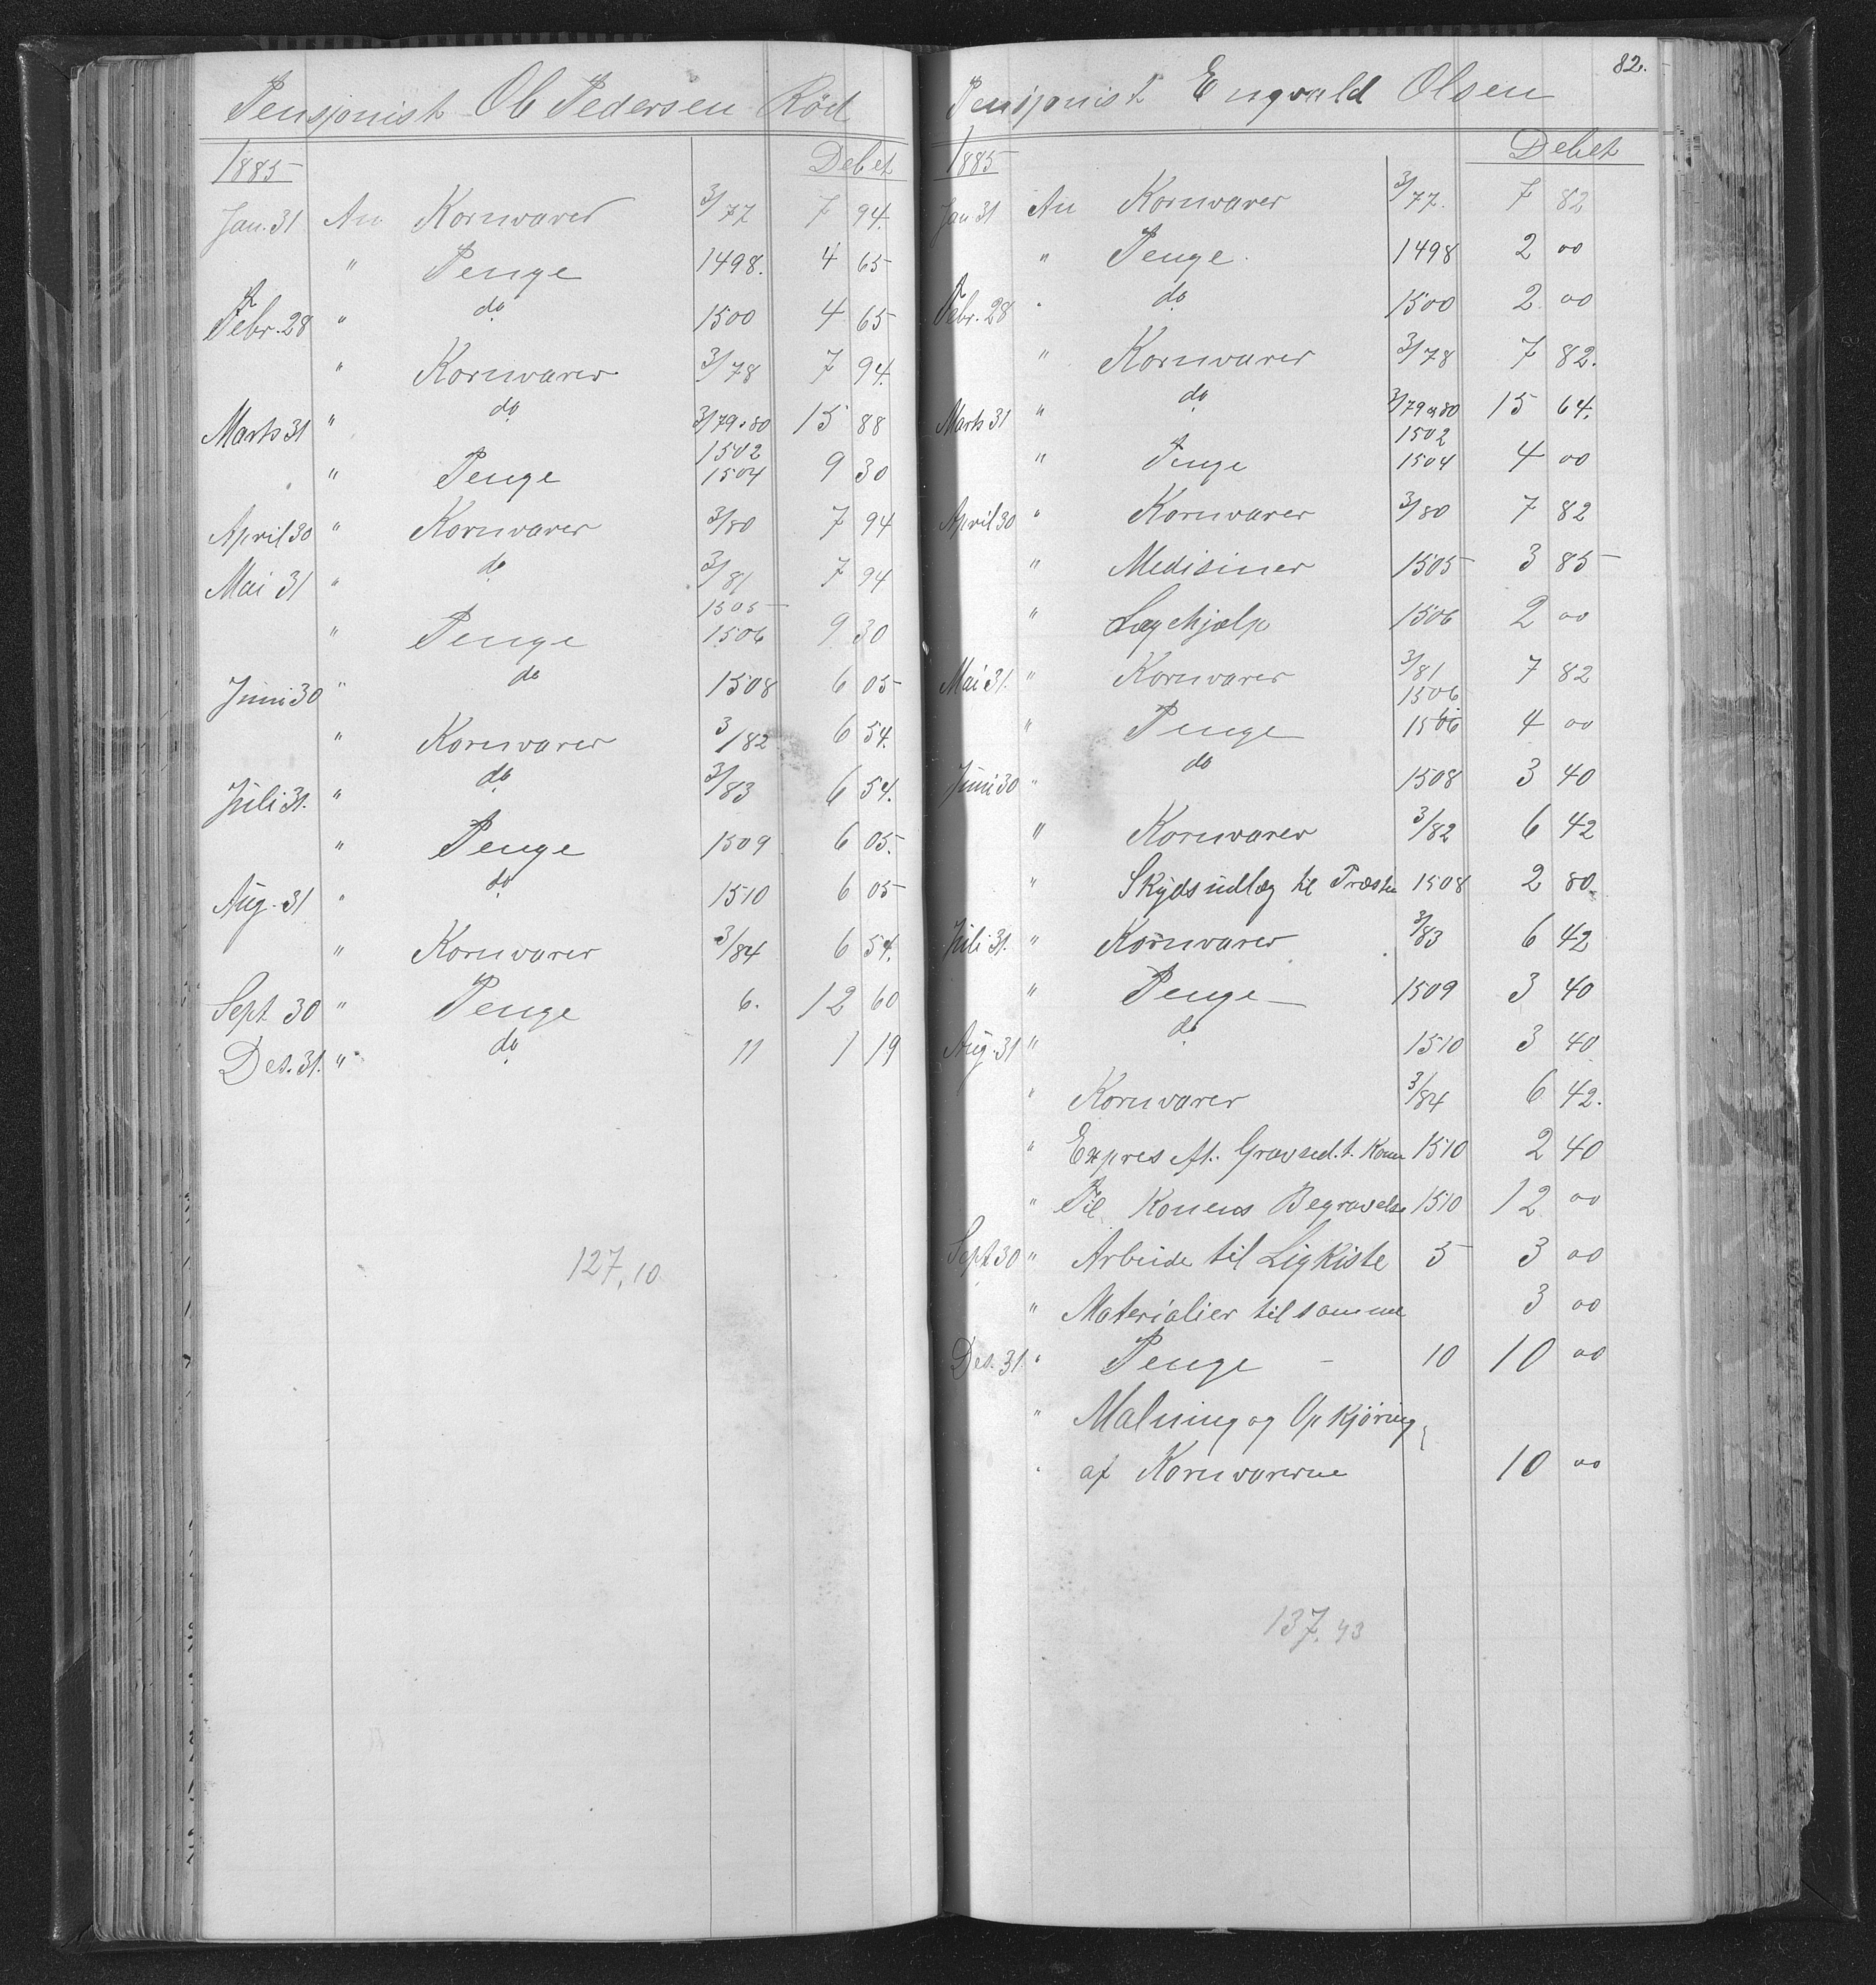 Pensjonist Ole Pedersen Röd
1885 Debet
Jan. 31 An Kornvarer 3/77 7 94.
" Penge 1498. 4 65
Febr. 28 " do 1500 4 65
" Kornvarer 3/78 7 94.
Marts 31 " do 3/79 & 80 15 88
1502
" Penge 1504 9 30
April 30 " Kornvarer 3/80 7 94
Mai 31 " do 3/81 7 94
1505
" Penge 1506 9 30
Juni 30 " do 1508 6 05
" Kornvarer 3/82 6 54.
Juli 31. " do 3/83 6 54.
" Penge 1509 6 05.
Aug. 31 " do 1510 6 05
" Kornvarer 3/84 6 54.
Sept 30 " Penge 6. 12 60
Des. 31. " do 11 1 19
127,10
82.
Pensjonist Engvald Olsen
1885 Debet
Jan 31 An Kornvarer 3/77. 7 82
" Penge. 1498 2 00
Febr. 28 " do 1500 2 00
" Kornvarer 3/78 7 82.
Marts 31 " do 3/79 & 80 15 64.
1502
" Penge 1504 4 00
April 30 " Kornvarer 3/80 7 82
" Medisiner 1505 3 85
" Lægehjælp 1506 2 00
Mai 31. " Kornvarer 3/81 7 82
1506
" Penge 1506 4 00
Juni 30 " do 1508 3 40
" Kornvarer 3/82 6 42
" Skydsudlæg til Præsten 1508 2 80
Juli 31. " Kornvarer 3/83 6 42
" Penge 1509 3 40
Aug. 31 " do 1510 3 40
" Kornvarer 3/84 6 42.
" Expres eft. Gravsed. t. Konen 1510 2 40
" Til Konens Begravelse 1510 12 00
Sept 30 " Arbeide til Ligkiste 5 3 00
" Materialier til samme 3 00
Des. 31. " Penge - 10 10 00
" Malning og Opkjøring
" af Kornvarerne 10 00
137.43